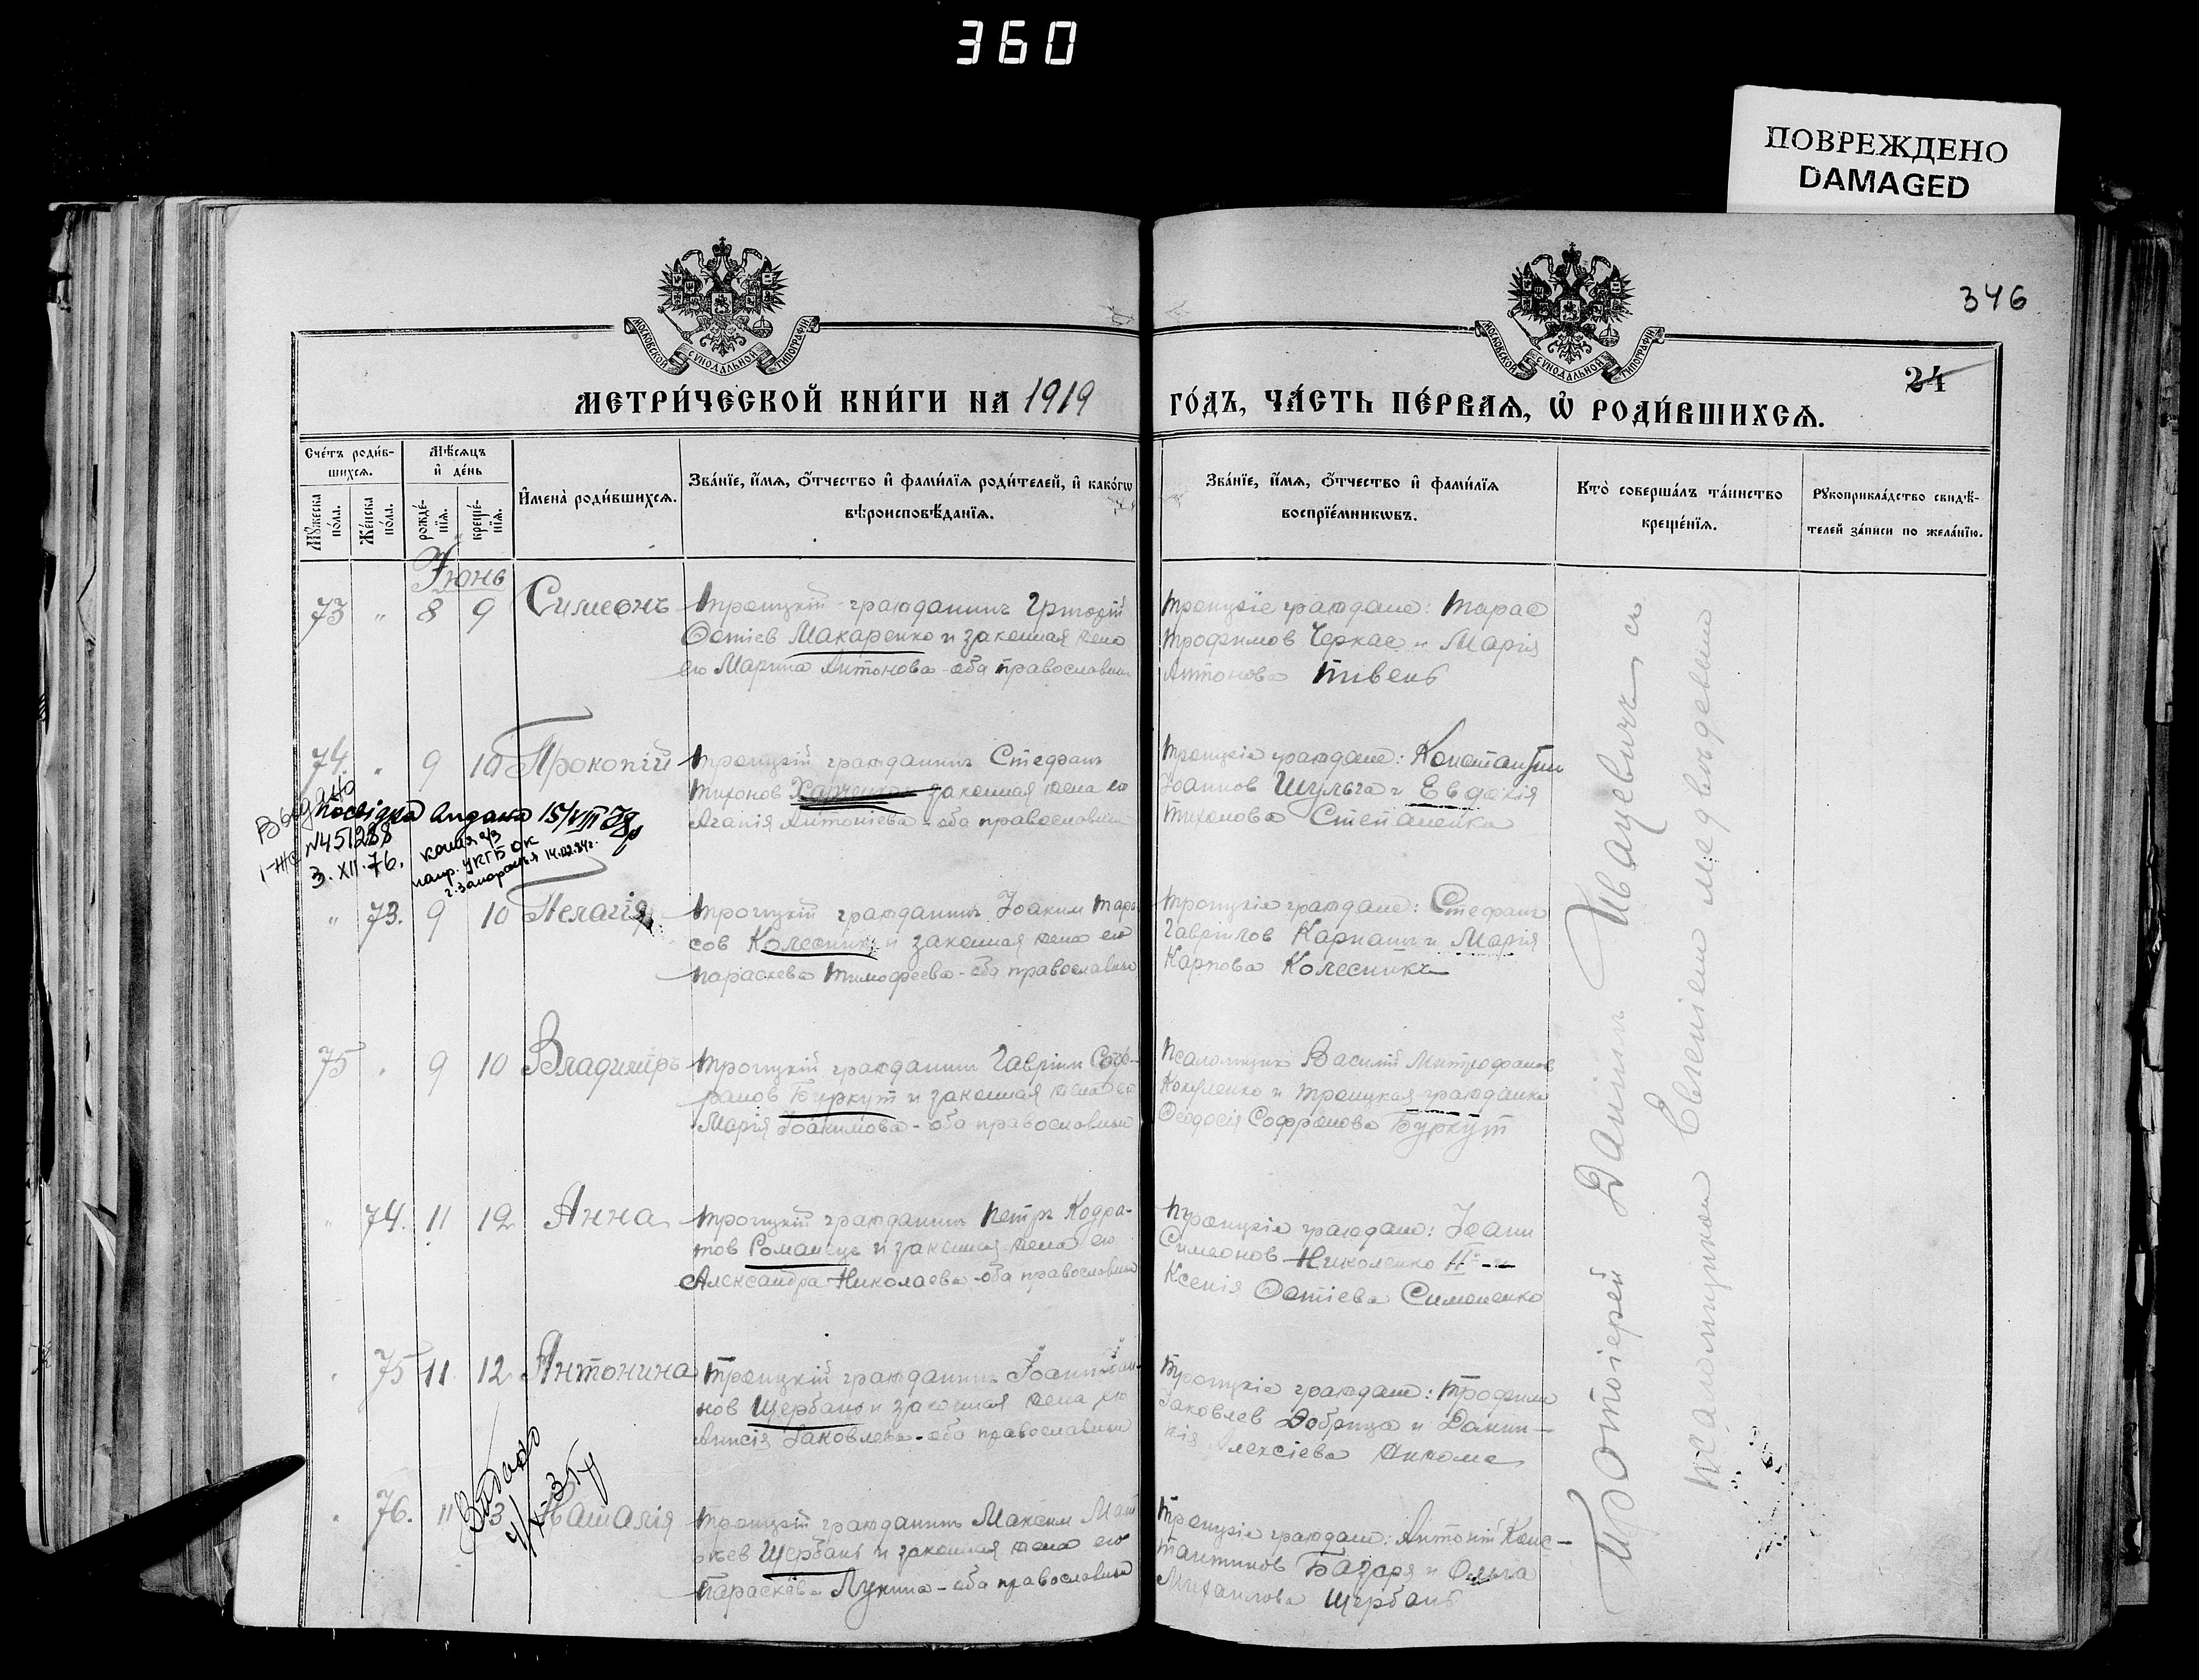 360
ПОВРЕЖДЕНО
DAMAGED
346
24
МОСКОВСКОЙ СѴНОДАЛЬНОЙ ТИПОГРАФІИ
МОСКОВСКОЙ СѴНОДАЛЬНОЙ ТИПОГРАФІИ
МЕТРИ́ЧЕСКОЙ КНИ́ГИ НА 1919
ГО́ДЪ, ЧА́СТЬ ПЕ́РВАѦ, Ѡ҆ РОДИ́ВШИХСѦ.
Сче́тъ роди́в-
шихсѧ.
Мꙋжеска по́ла.
Же́нска по́ла.
Мѣ́сѧцъ
и҆ де́нь
рожде́-
нїѧ.
креще́-
нїѧ.
И҆мена̀ роди́вшихсѧ.
Зва́нїе, и҆́мѧ, ѻ҆́тчество и҆ фами́лїѧ роди́телей, и҆ како́гѡ
вѣроисповѣ́данїѧ.
Зва́нїе, и҆́мѧ, ѻ҆́тчество и҆ фами́лїѧ
воспрїе́мникѡвъ.
Кто̀ соверша́лъ та́инство
креще́нїѧ.
Рꙋкоприкла́дство свидѣ́-
телей за́писи по жела́нїю.
Іюнь
73 " 8 9 Симеонъ
Троицкій гражданинъ Григорій
Фотіев Макаренко и законная жена
его Марина Антонова - оба православные
Троицкіе граждане: Тарас
Трофимов Черкас и Марія
Антонова Пивень
74. " 9 10 Прокопій
Троицкій гражданинъ Стефанъ
Тихонов Харченко и законная жена его
Агапія Антоніева - оба православные
Троицкіе граждане: Константин
Іоаннов Шульга и Евдокія
Тихонова Степаненко
Выдано
№451288
3.XII.76.
копия а/з
напр. УКГБ
г. Запорожья 14.02.84г.
" 73. 9 10 Пелагія
Троицкій гражданинъ Іоаким Тара-
сов Колесник и законная жена его
Параскева Тимофеева - оба православные
Троицкіе граждане: Стефанъ
Гавріилов Карпашъ и Марія
Карпова Колесникъ
75 " 9 10 Владиміръ
Троицкій гражданинъ Гавріил Соф-
ронов Буркут и законная жена его
Марія Іоакимова - оба православные
Псаломщик Василій Митрофанов
и Троицкая гражданка
Феодосія Софронова Буркут
" 74. 11 12 Анна
Троицкій гражданинъ Петръ Кодра-
тов Романець и законная жена его
Александра Николаева - оба православные
Троицкіе граждане: Іоанн
Симеонов Николенко II-й и
Ксенія Фотіева Симоненко
" 75 11 12 Антонина
Троицкій гражданинъ Іоанн Іоан-
нов Щербань и законная жена его
Анисія Іаковлева - оба православные
Троицкіе граждане: Трофим
Іаковлев Добрица и Домни-
кія Алексіева
Видано
" 76. 11 13 Наталія
Троицкій гражданинъ Максим Мат-
ѳеев Щербань и законная жена его
Параскева Лукина - оба православные
Троицкіе граждане: Антоній Конс-
тантинов Базаря и Ольга
Михаилова Щербань
Протоіерей Даніил Ивацевичъ съ
псаломщиком Евгеніем Медвѣдевым